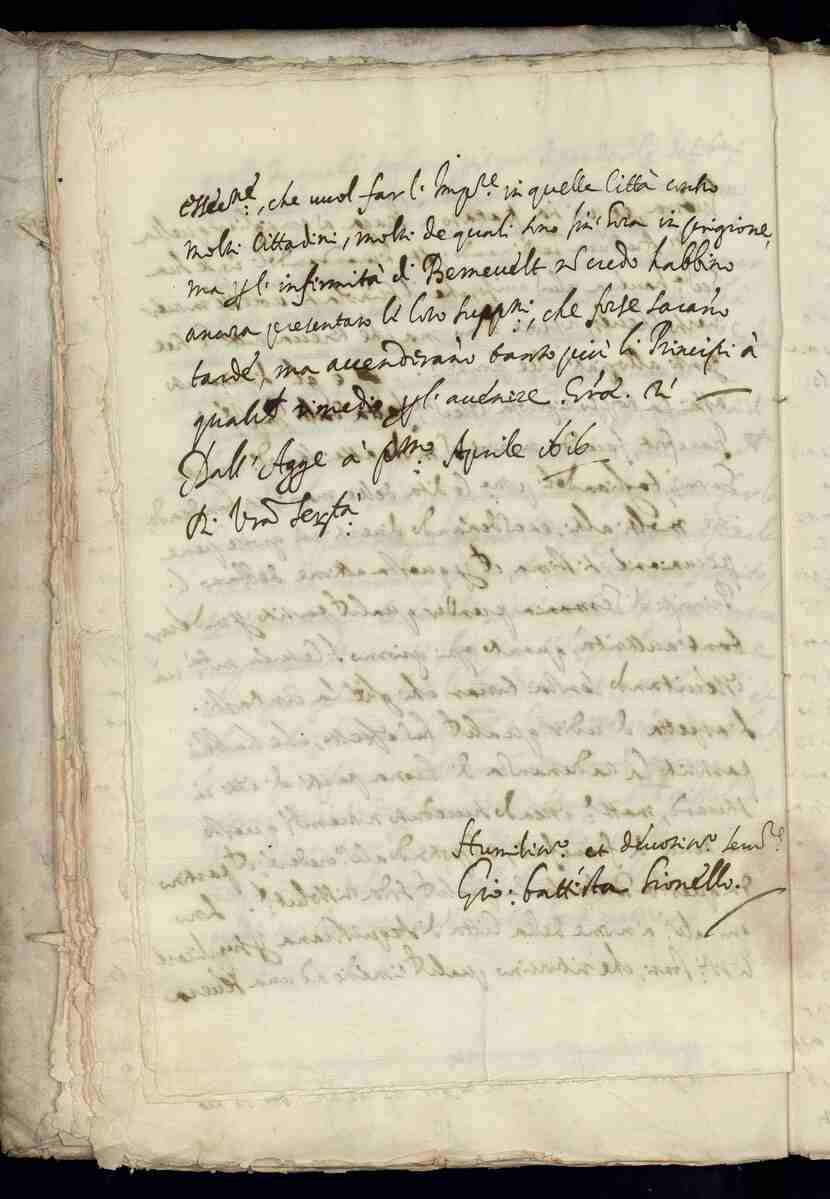 essecne, che vuol far l'Impre in quelle Città contro
molti Cittadini, molti de quali sono sin' hora in prigione,
ma p l'infirmità di Bernevelt nò credo habbino
ancora presentato le loro suppni, che forse saràno
tarde, ma accenderàno tanto più li Principi à
qualche rimedio p l'avenire. Gra. &
Dall'Agge à pmo Aprile 1616
Di Vra Sertà
Humiliso. et devotiso. servre
Gio: Battista Lionello.